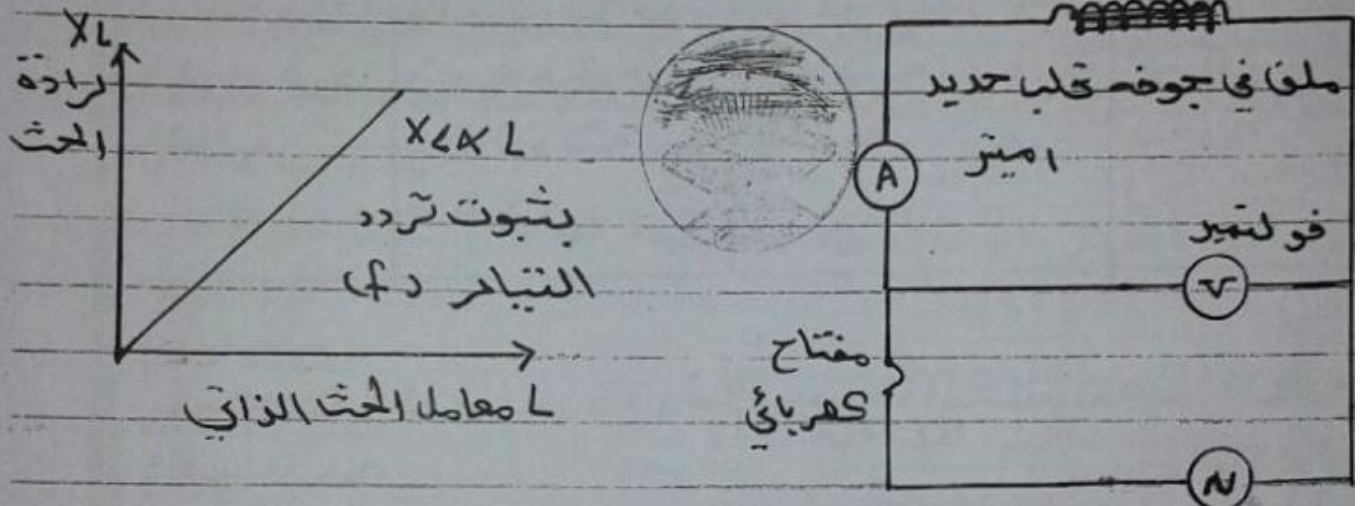 XL
رادة
الحث
XL ∝ L
بثبوت تردد
التيار (f)
L معامل الحث الذاتي
ملف في جوفه قلب حديد
اميتر
A
فولتميتر
V
مفتاح
كهربائي
N